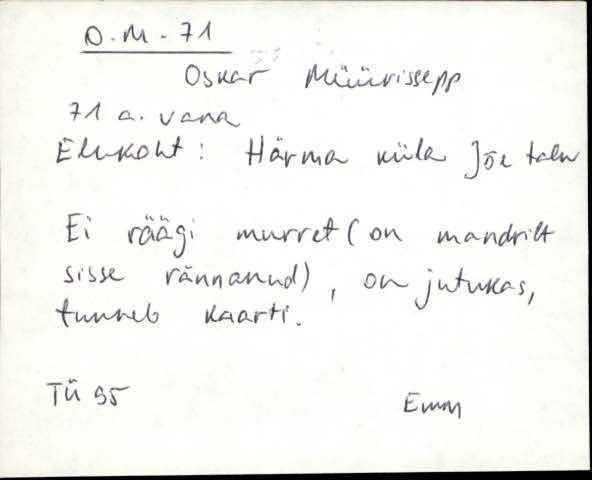 O.M.-71
Oskar Müürissepp
71 a. vana
Elukoht: Härma küla Jõe talu
Ei räägi murret (on mandrilt
sisse rännanud), on jutukas,
tunneb kaarti.
TÜ 95 Emm